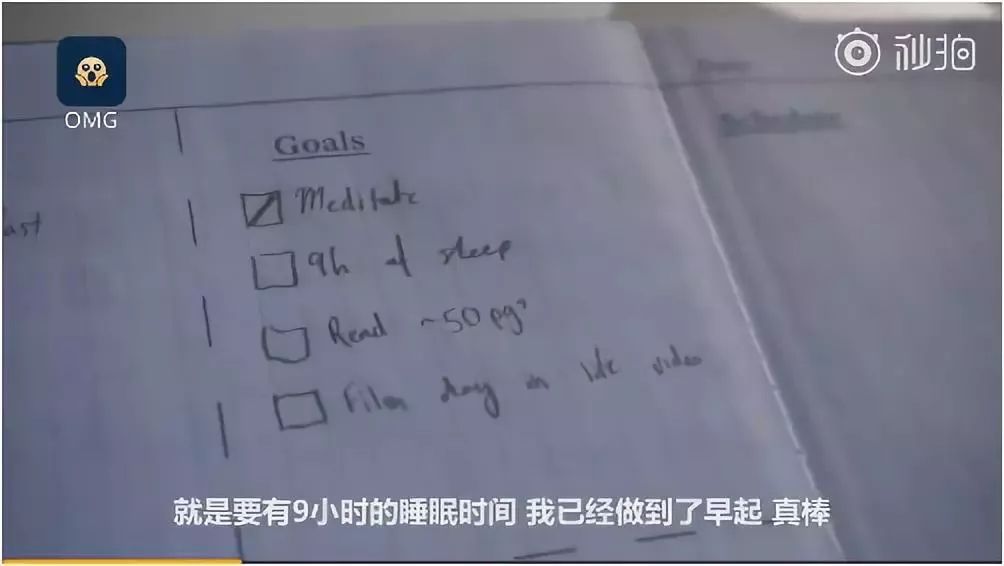 秒拍
OMG
Goals
Meditate
9h of sleep
Read ~50 pgs
Film day in life video
ast
就是要有9小时的睡眠时间 我已经做到了早起 真棒